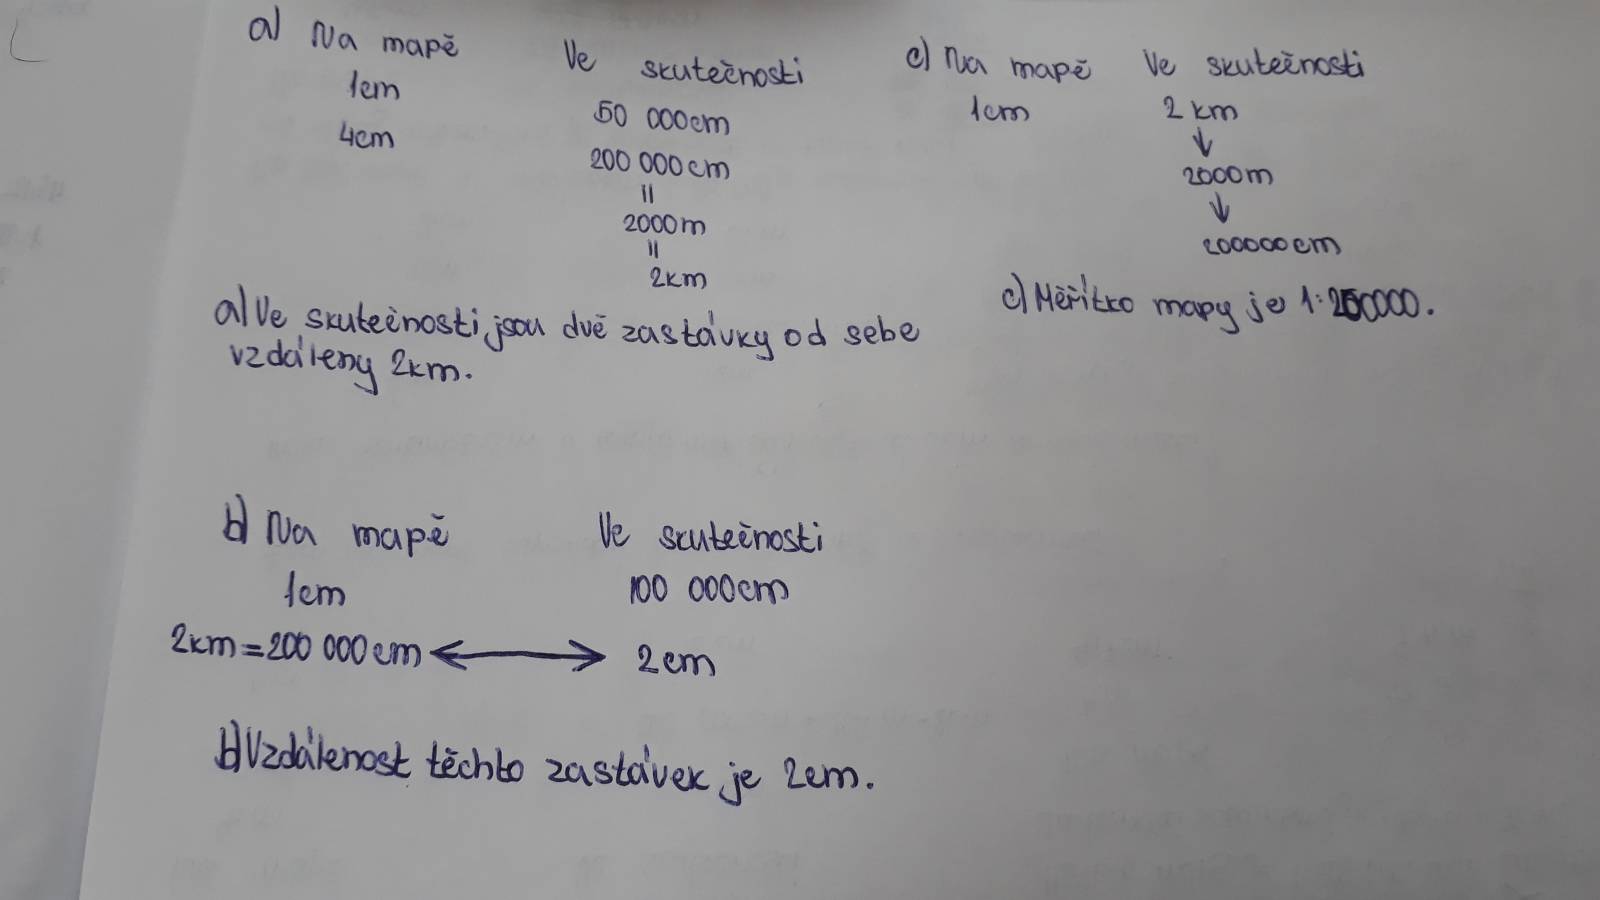 a) Na mapě Ve skutečnosti
1cm 50 000cm
4cm 200 000cm
=
2000m
=
2km
a) Ve skutečnosti jsou dvě zastávky od sebe
vzdáleny 2km.
c) Na mapě Ve skutečnosti
1cm 2 km
↓
2000m
↓
200000cm
c) Měřítko mapy je 1:200000.
b) Na mapě Ve skutečnosti
1cm 100 000cm
2km=200 000cm ↔ 2cm
b) Vzdálenost těchto zastávek je 2cm.